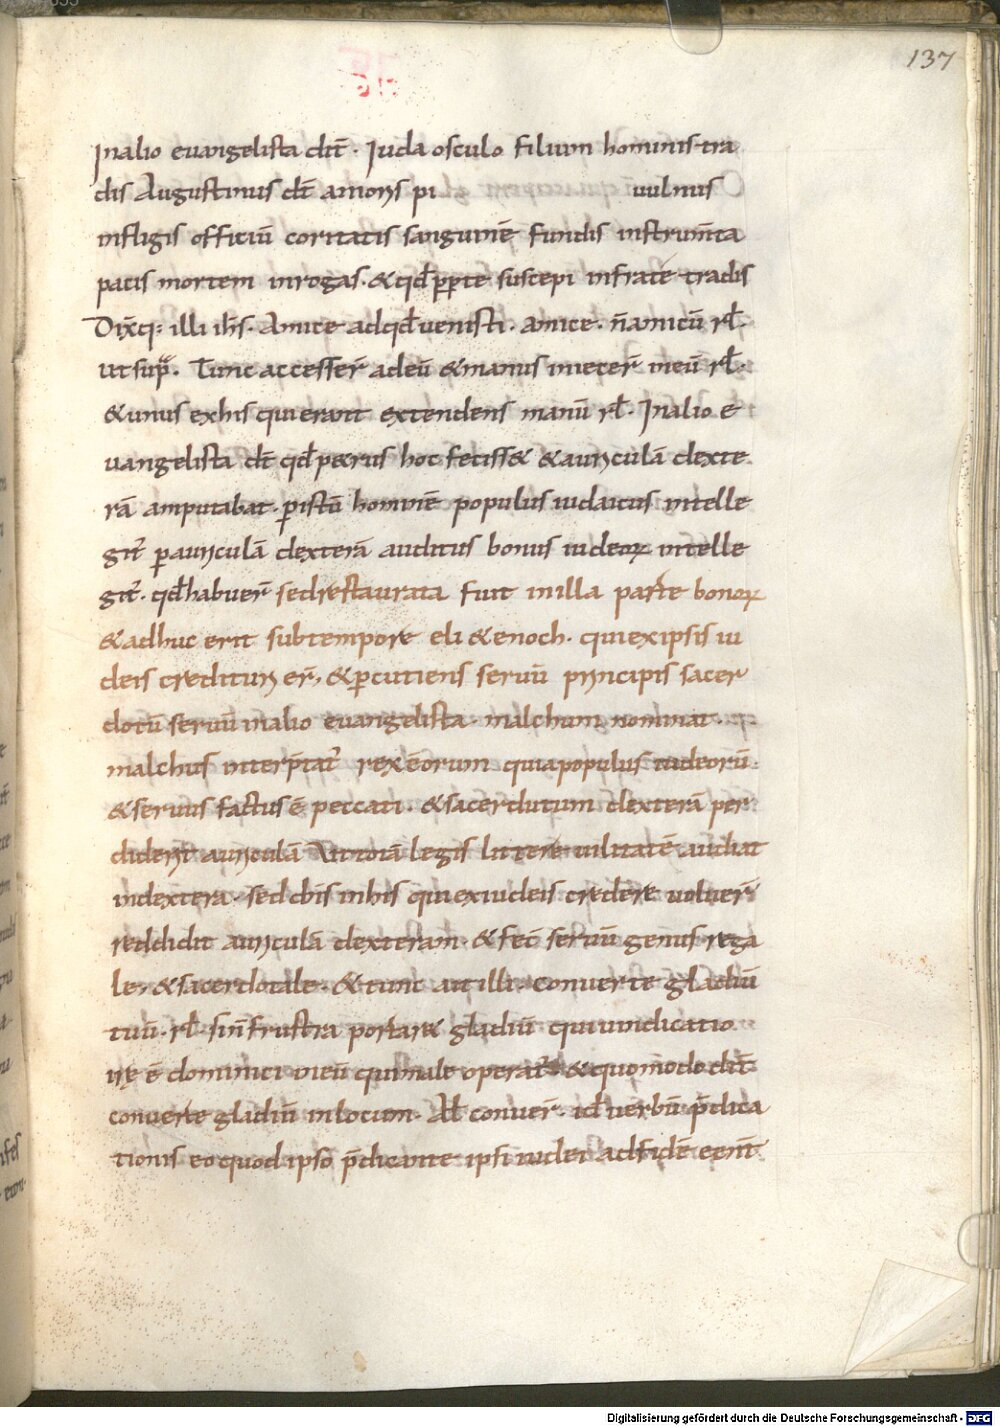 137
Inalio euangelista dic̄t. Iuda osculo filium hominis tra
dis Augustinus dic̄t amoris pi uulnus
infligis officiū coritatis sanguinē fundis instrum̄ta
pacis mortem inrogas. & qđ ꝑparte suscepi infrate tradis
Dix̄q; illi ih̄s. Amice adqđ uenisti. amice. n̄ amicū rł.
ut sup̄. Tunc accesser̄ adeū & manus iniecer̄ ineū rł.
& unus exhis qui erant extendens manū rł. Inalio e
uangelista dic̄t qđ p&rus hoc feciss& & auriculā dexte
rā amputabat. ꝑistū hominē populus iudaicus intelle
git̄ ꝑauriculā dexterā auditus bonus iudeoꝝ intelle
git̄. qđ habuer̄ sed restaurata fuit in illa parte bonoꝝ
& adhuc erit sub tempore eli & enoch. qui exipsis iu
deis credituri er̄, & ꝑcutiens seruū principis sacer
dotū seruū inalio euangelista. malchum nominat.
malchus interp̄tat̄ rex eorum quia populus iudeorū
& seruus factus ē peccati. & sacerdutum dexterā per
diderit auriculā legis littere uilitatē audiat
indextera. sed dn̄s inhis qui exiudeis credere uoluer̄
reddidit auriculā dexteram. & fec̄ seruū genus rega
le, & sacerdotale. & tunc ait illi. conuerte gladiū
tuū. rł. sin̄ frustra portar& gladiū qui uindicatio
ē dominici ineū qui male operat̄ & quomodo dic̄t
conuerte gladiū in locum. Ał conuer̄. id uerbū p̄dica
tionis eo quod ipso p̄dicante ipsi iudei ad fidē
Digitalisierung gefördert durch die Deutsche Forschungsgemeinschaft - DFG